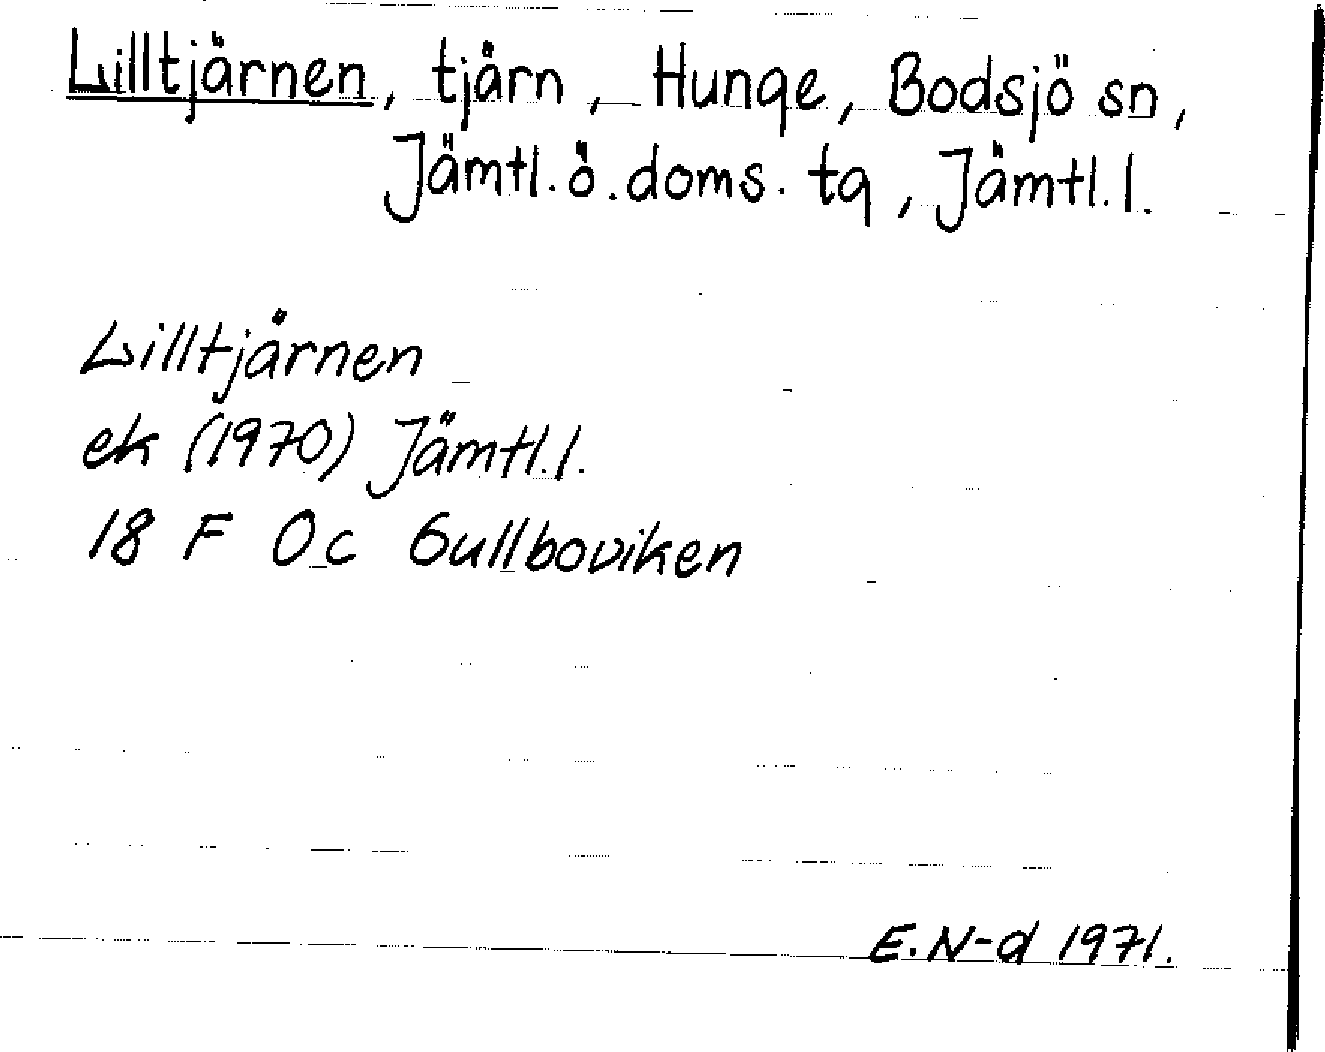 Lilltjärnen, tjärn, Hunge, Bodsjö sn,
Jämtl. ö. doms. tg, Jämtl. l.
Lilltjärnen
ek (1970) Jämtl. l.
18 F 0c Gullboviken
E. N-d 1971.